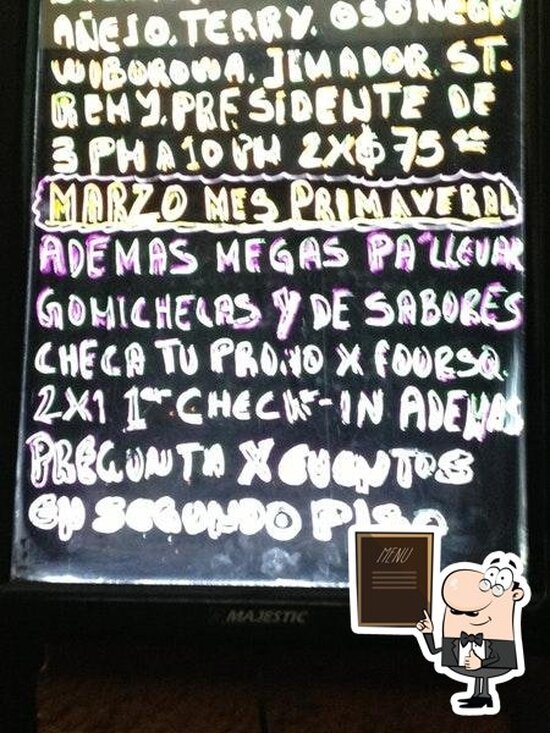 AÑEJO. TERRY. OSO NEGRO
WIBOROWA. JIMADOR. ST.
REMY. PRESIDENTE DE
3 PM A 10 PM 2X$75
MARZO MES PRIMAVERAL
ADEMAS MEGAS PA'LLEVAR
GOMICHELAS Y DE SABORES
CHECA TU PROMO X FOURSQ.
2X1 1er CHECK-IN ADEMAS
PREGUNTA X EVENTOS
EN SEGUNDO PISO
MAJESTIC
MENU